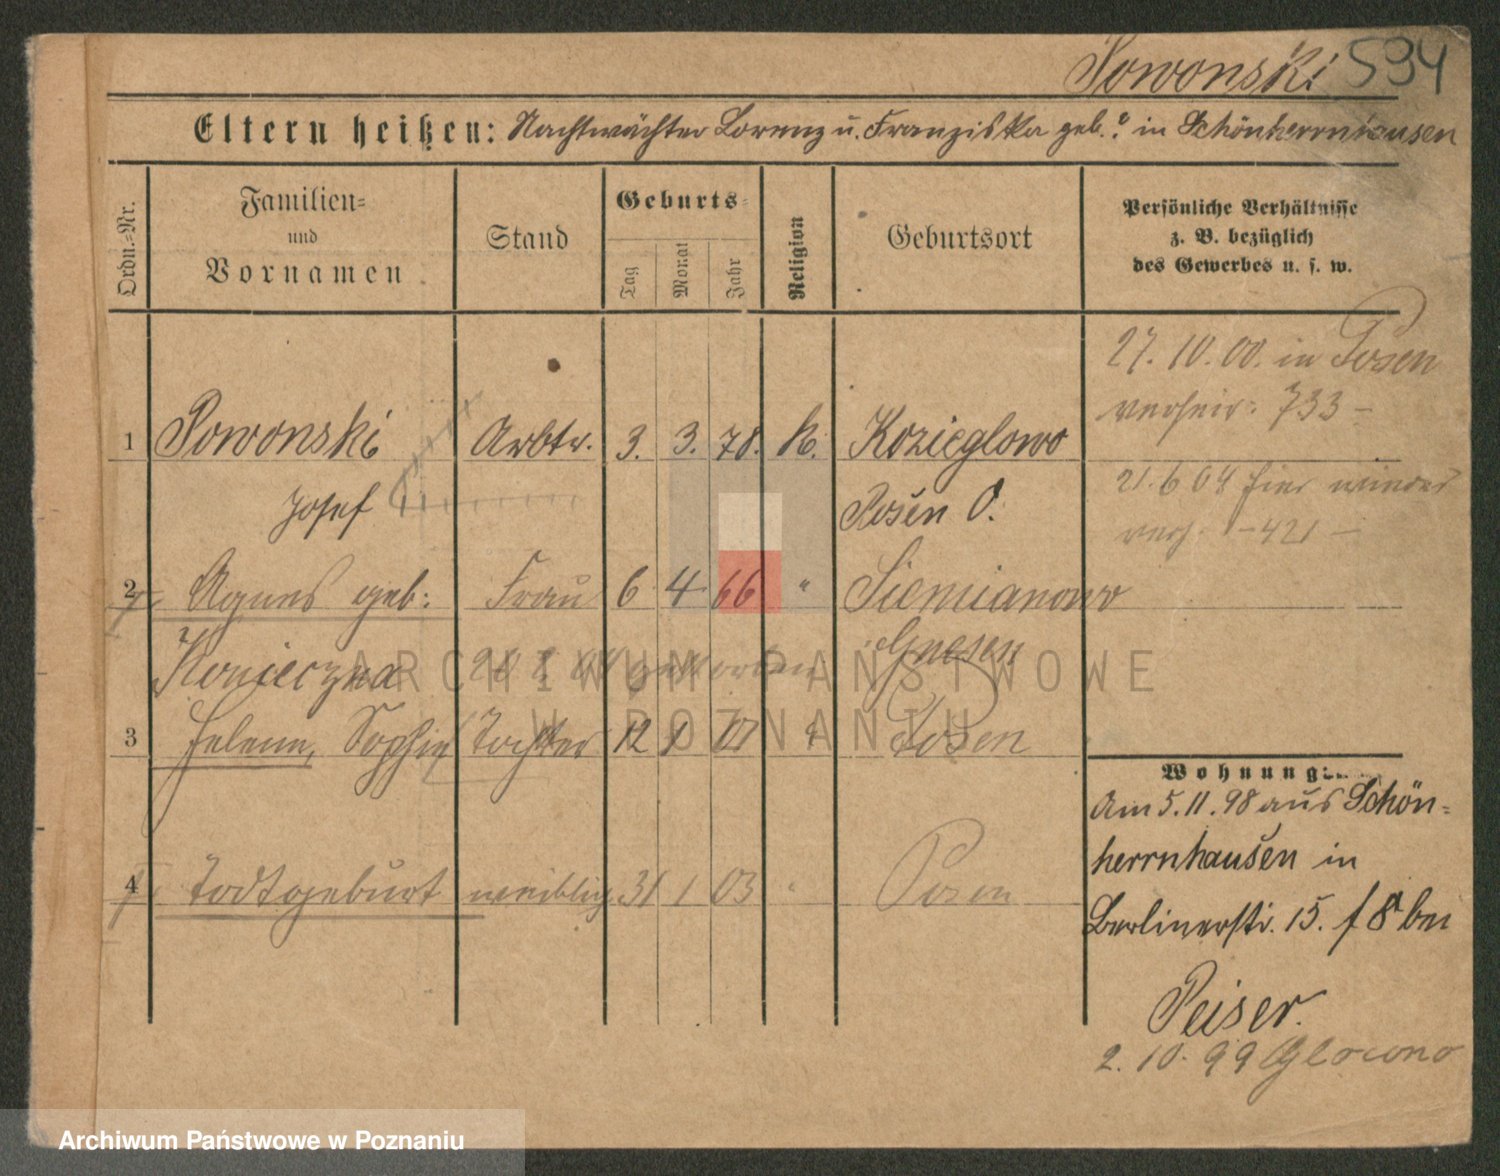 Powonski 594
Eltern heißen: Nachtwächter Lorenz u. Franziska geb. ? in Schönherrnhausen
Ordn.-Nr.
Familien-
und
Vornamen
Stand
Geburts-
Tag
Monat
Jahr
Religion
Geburtsort
Persönliche Verhältnisse
z. B. bezüglich
des Gewerbes u. s. w.
27. 10. 00. in Posen
verheir: 733 –
1 Powonski Arbtr. 3. 3. 78. k. Kozieglowo
Josef Posen O.
21. 6 04 hier wieder
verh. – 421 –
2 Agnes geb: Frau 6 4 66 " Siemianowo
Konieczna gestorben Gnesen
3 Helene, Sophie Tochter 12 1 01 " Posen
4 Todtgeburt weiblich 31 1 03 " Posen
Wohnung:
Am 5. 11. 98 aus Schön-
herrnhausen in
Berlinerstr. 15. f 8 bei
Peiser.
2. 10. 99 Glowno
ARCHIWUM PAŃSTWOWE
W POZNANIU
Archiwum Państwowe w Poznaniu